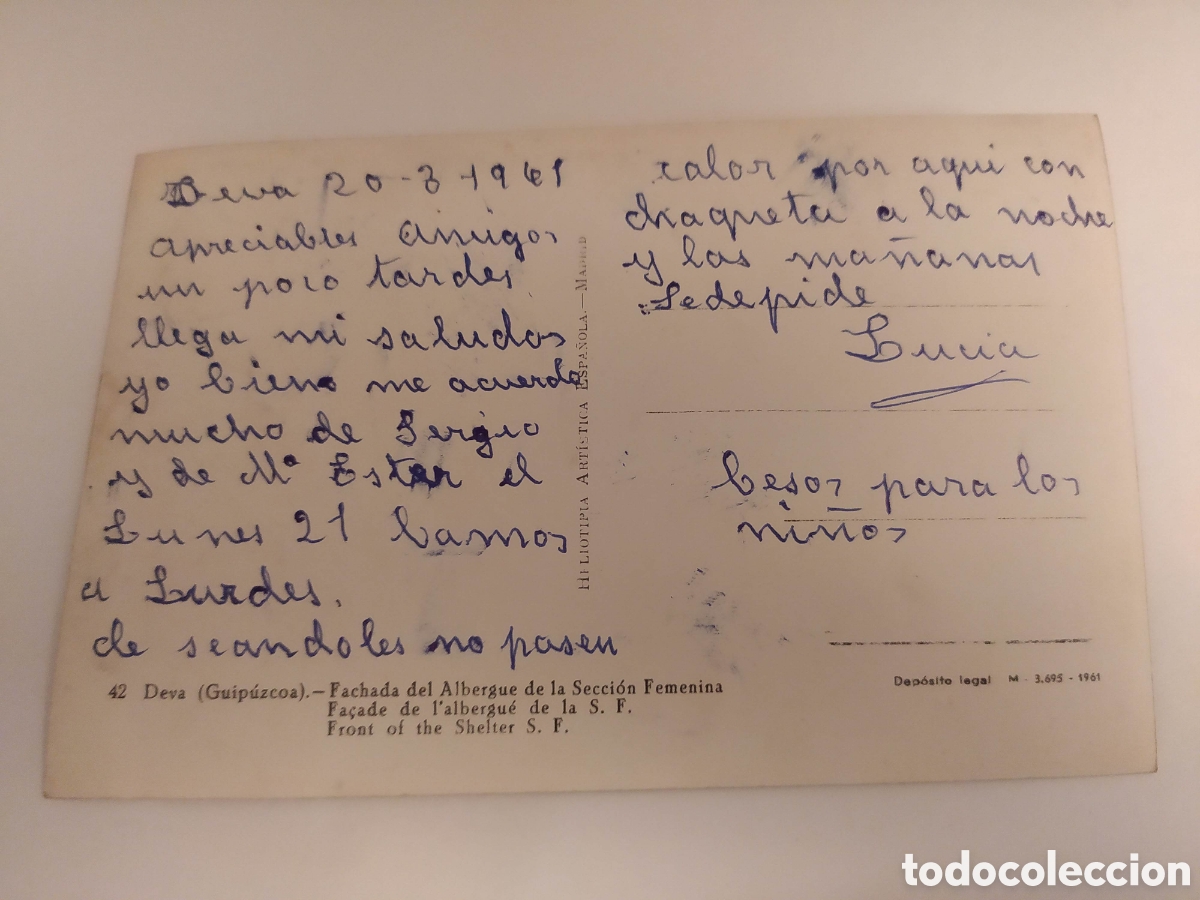 Deva 20-8-1961
apreciables amigos
un poco tardes
llega mi saludos
yo bieno me acuerdo
mucho de Sergio
y de Mª Ester el
Lunes 21 bamos
a Lurdes.
de seandoles no pasen
calor por aqui con
chaqueta a la noche
y las mañanas
Sedepide
Lucia
besos para los
niños
HELIOTIPIA ARTÍSTICA ESPAÑOLA.—MADRID
42 Deva (Guipúzcoa).—Fachada del Albergue de la Sección Femenina
Façade de l'albergué de la S. F.
Front of the Shelter S. F.
Depósito legal M - 3.695 - 1961
todocoleccion